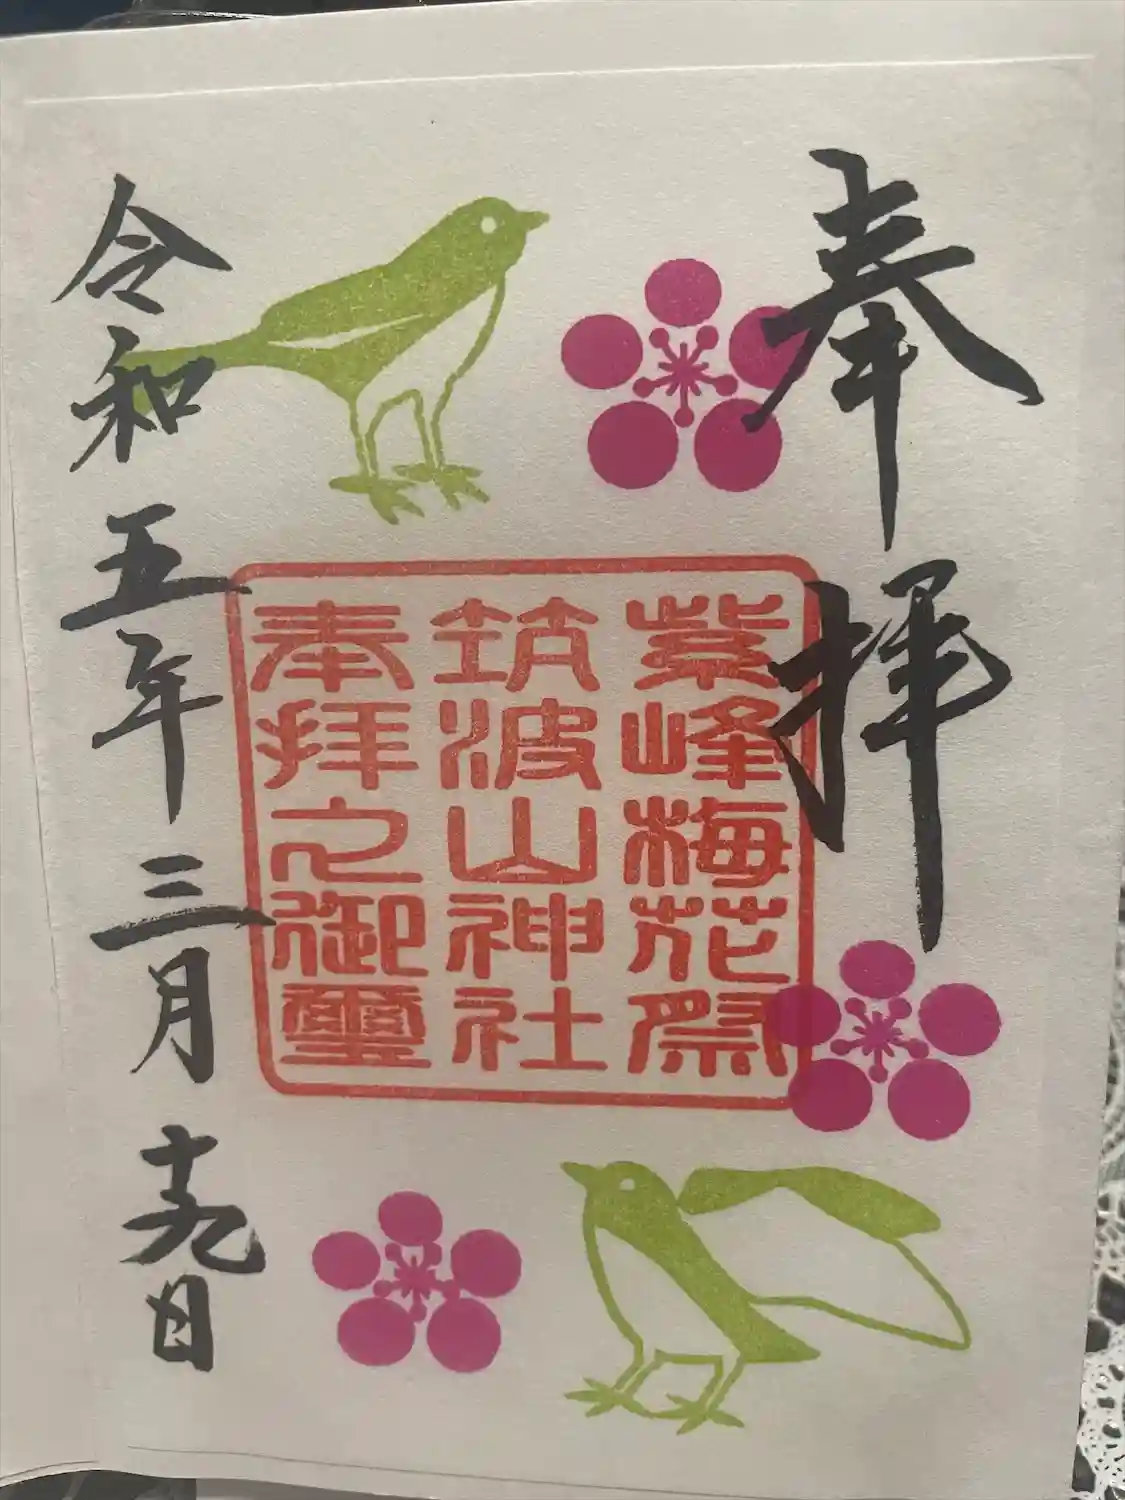 奉拝
紫峰梅花祭
筑波山神社
奉拝之御璽
令和五年三月十九日